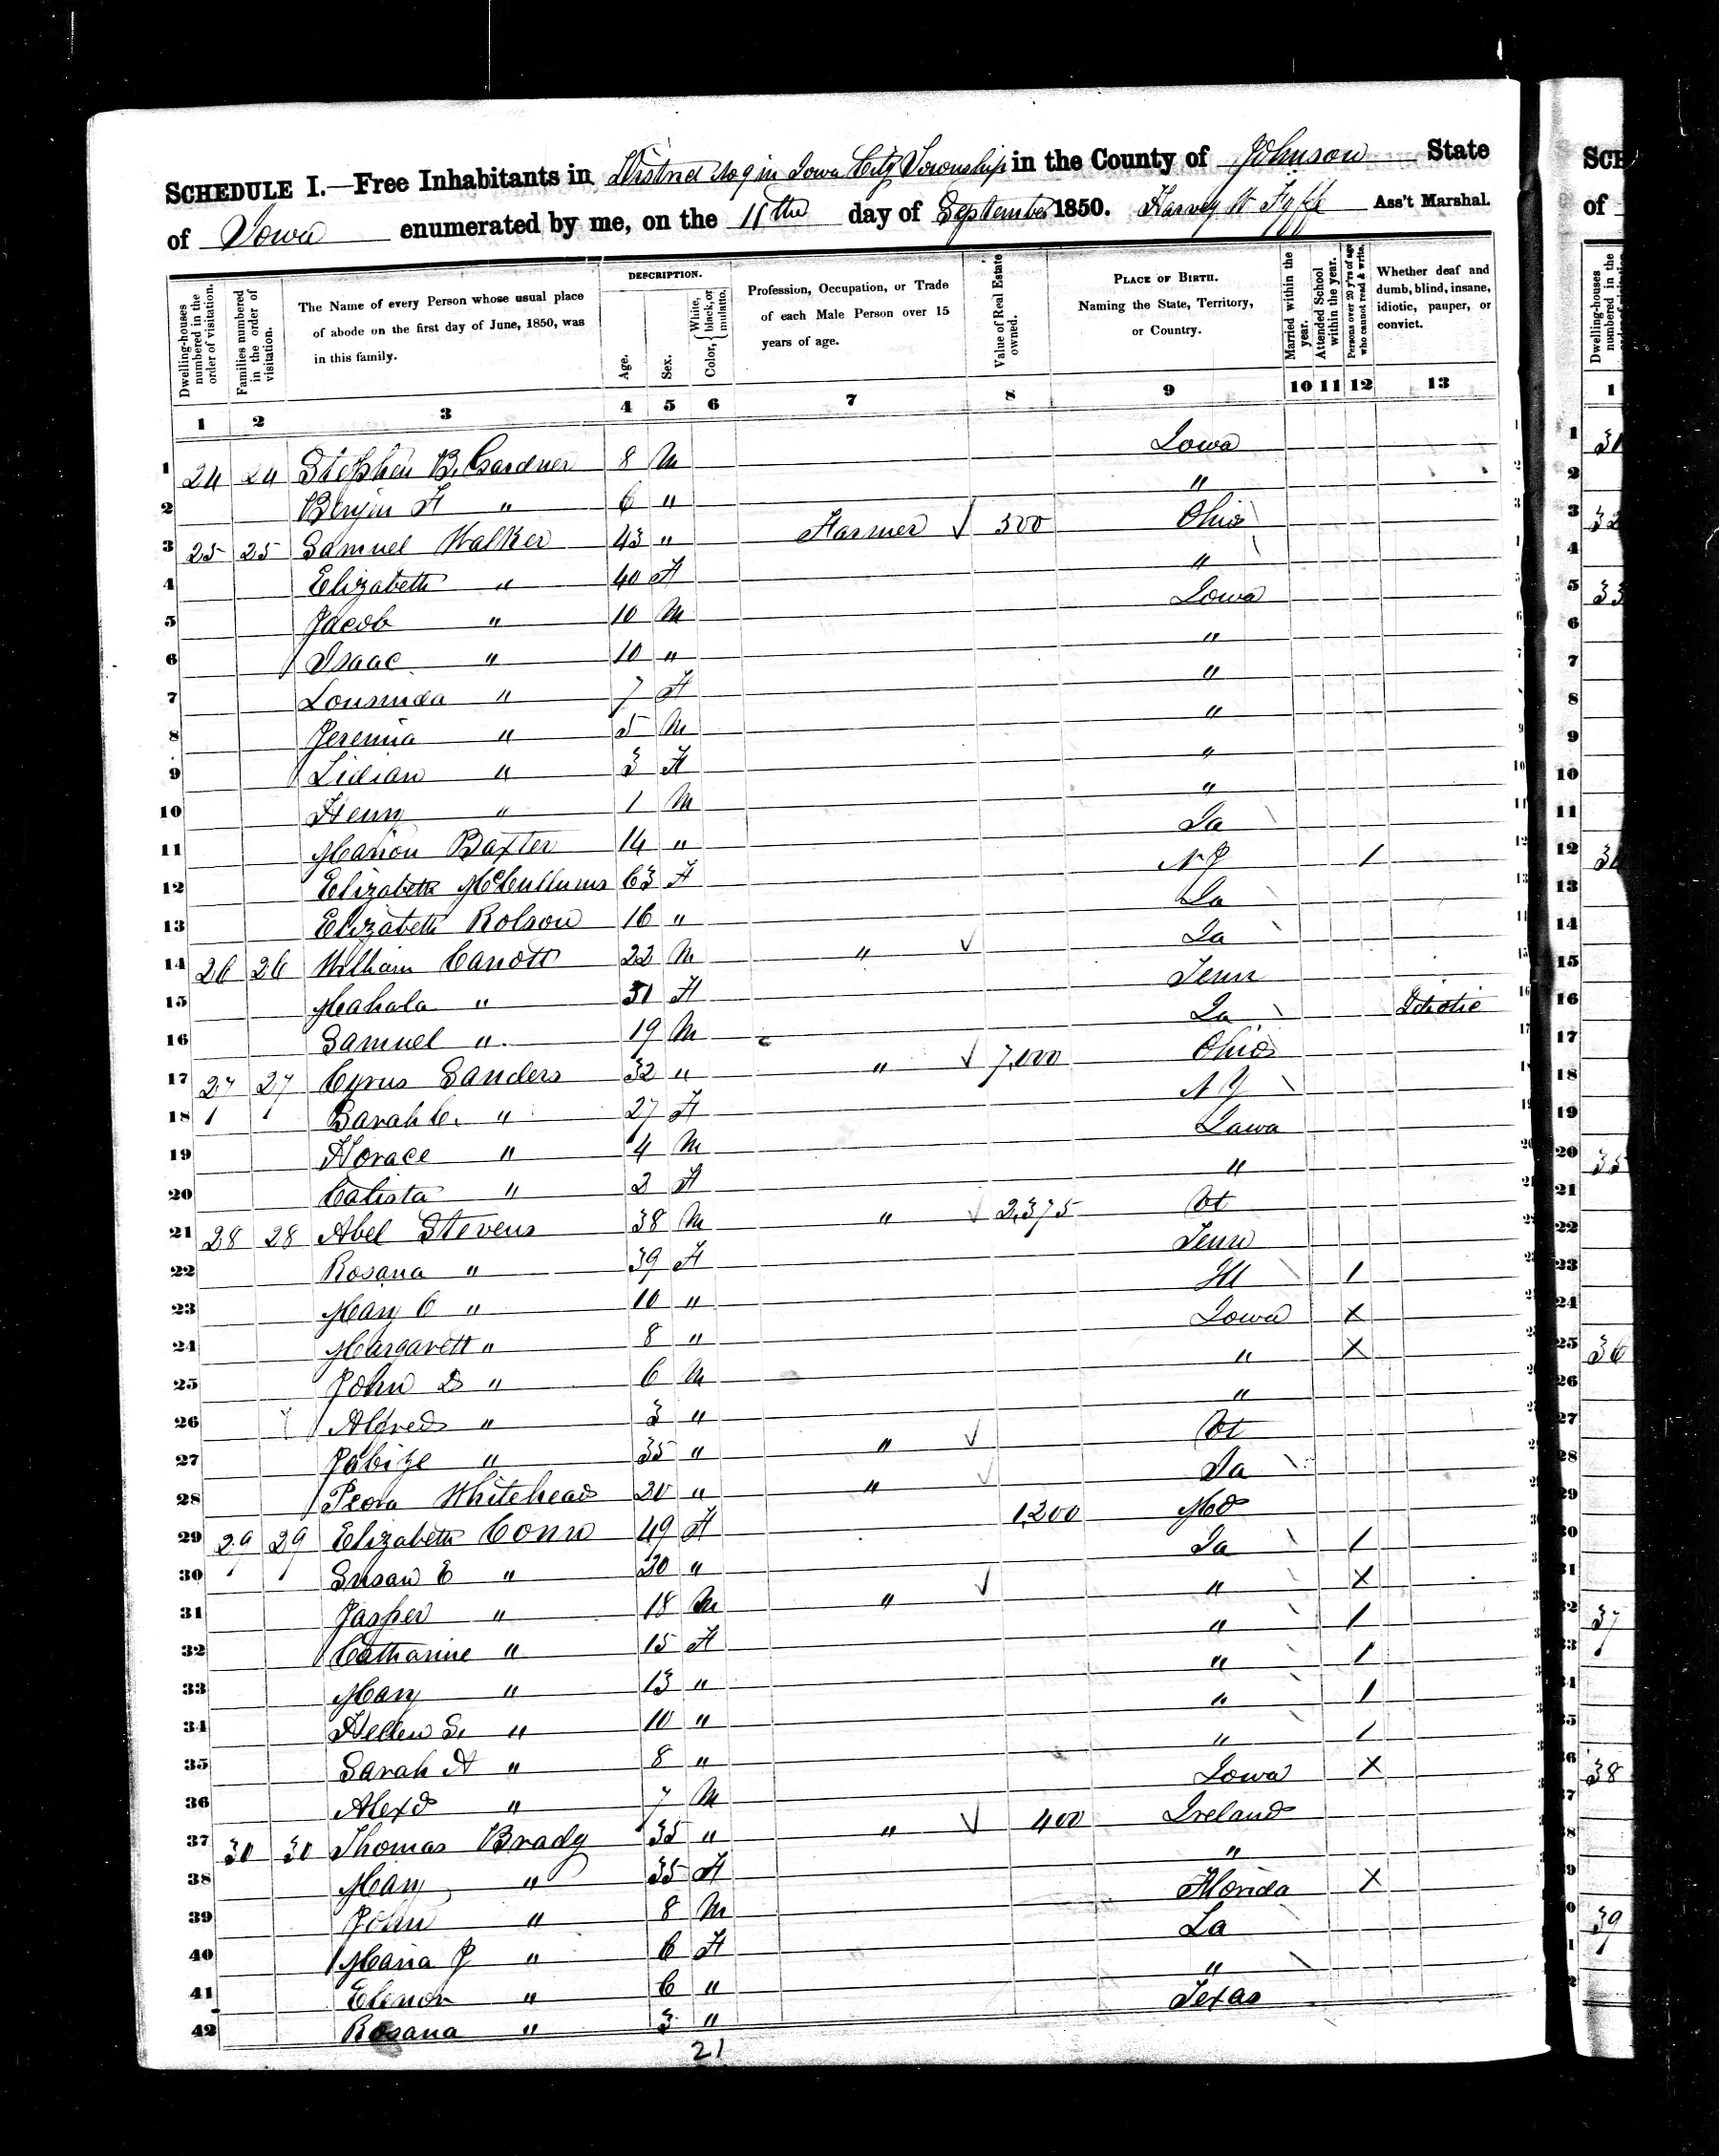 SCHEDULE I.—Free Inhabitants in District No 9 in Iowa City Township in the County of Johnson State
of Iowa enumerated by me, on the 11th day of September 1850. Harvey W Fyffe Ass't Marshal.
Dwelling-houses numbered in the order of visitation.
Families numbered in the order of visitation.
The Name of every Person whose usual place of abode on the first day of June, 1850, was in this family.
DESCRIPTION.
Age.
Sex.
Color, { White, black, or mulatto.
Profession, Occupation, or Trade of each Male Person over 15 years of age.
Value of Real Estate owned.
PLACE OF BIRTH. Naming the State, Territory, or Country.
Married within the year.
Attended School within the year.
Persons over 20 y'rs of age who cannot read & write.
Whether deaf and dumb, blind, insane, idiotic, pauper, or convict.
1 2 3 4 5 6 7 8 9 10 11 12 13
1 24 24 Stephen B. Gardner 8 M Iowa
2 Benjm F " 6 " "
3 25 25 Samuel Walker 43 " Farmer √ 500 Ohio
4 Elizabeth " 40 F "
5 Jacob " 10 M Iowa
6 Isaac " 10 " "
7 Lousinda " 7 F "
8 Jeremia " 5 M "
9 Lidian " 3 F "
10 Henry " 1 M "
11 Marion Baxter 14 " Ia
12 Elizabeth McCullums 63 F N J /
13 Elizabeth Rolson 16 " Ia
14 26 26 William Carrott 22 M " √ Ia
15 Mahala " 51 F Tenn
16 Samuel " 19 M Ia Idiotic
17 27 27 Cyrus Sanders 32 " " √ 7,000 Ohio
18 Sarah C. " 27 F N Y
19 Horace " 4 M Iowa
20 Calista " 2 F "
21 28 28 Abel Stevens 38 M " √ 2,375 Vt
22 Rosana " 39 F Tenn
23 Mary C " 10 " Ill /
24 Margarett " 8 " Iowa X
25 John D " 6 M " X
26 Alfred " 3 " "
27 Jabize " 35 " " √ Vt
28 Peora Whitehead 20 " " √ Ia
29 29 29 Elizabeth Conn 49 F 1,200 Md
30 Susan E " 20 " Ia /
31 Jasper " 18 M " √ " X
32 Catharine " 15 F " /
33 Mary " 13 " " /
34 Hellen S. " 10 " " /
35 Sarah A " 8 " " /
36 Alexd " 7 M Iowa X
37 30 30 Thomas Brady 35 " " √ 400 Ireland
38 Mary " 35 F "
39 John " 8 M Florida X
40 Maria J " 6 F La
41 Elenor " 6 " "
42 Rosana " 3 " Texas
21